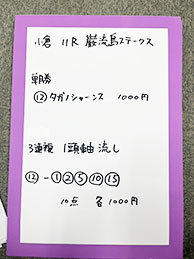 小倉 11R 巌流島ステークス
単勝
⑫タガノシャーンス 1000円
3連複 1頭軸 流し
⑫-①②⑤⑩⑮
10点 各1000円